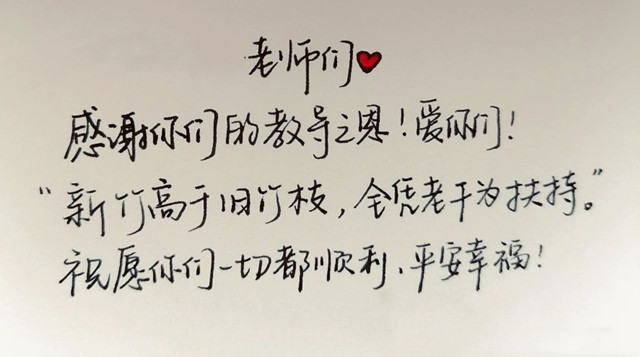 老师们❤
感谢你们的教导之恩！爱你们！
“新竹高于旧竹枝，全凭老干为扶持。”
祝愿你们一切都顺利、平安幸福！